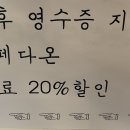 휴 영수증 지
페다온
료 20%할인